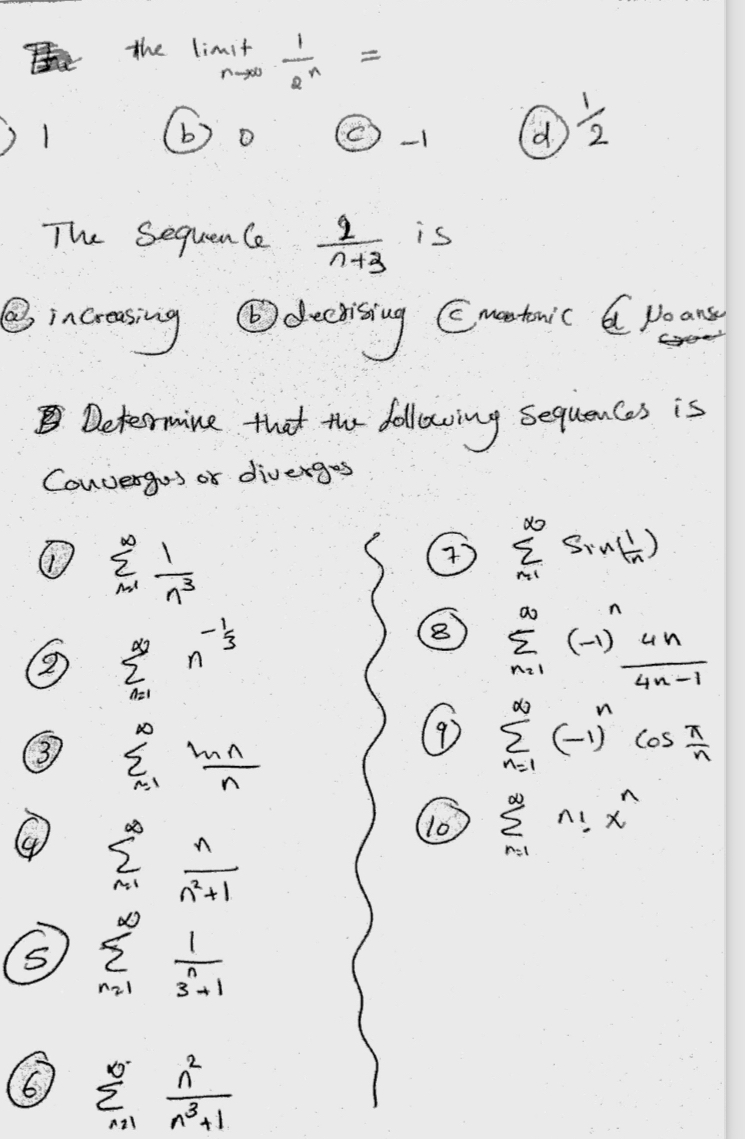 the limit n→∞ 1/2^n =
) 1 (b) 0 (c) -1 (d) 1/2
The Sequence 2/(n+3) is
(a) increasing (b) decrising (c monotonic (d No ans
Determine that the following sequences is
Converges or diverges
(1) ∞ Σ n=1 1/n^3
(2) ∞ Σ n=1 n^(-1/3)
(3) ∞ Σ n=1 ln n/n
(4) ∞ Σ n=1 n/(n^2+1)
(5) ∞ Σ n=1 1/(3^n+1)
(6) ∞ Σ n=1 n^2/(n^3+1)
(7) ∞ Σ n=1 Sin(1/n)
(8) ∞ Σ n=1 (-1)^n 4n/(4n-1)
(9) ∞ Σ n=1 (-1)^n cos π/n
(10) ∞ Σ n=1 n! x^n